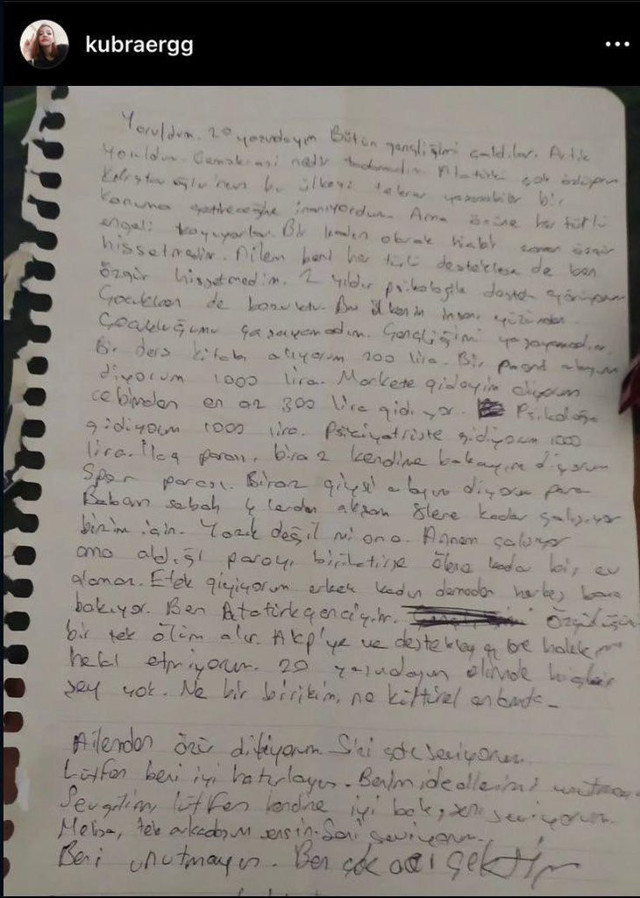 kubraergg
Yoruldum. 20 yaşındayım Bütün gençliğimi çaldılar. Artık
yoruldum. Demokrasi nedir tadamadım. Atatürk'ü çok özlüyorum
Kılıçdaroğlu'nun bu ülkeyi tekrar yaşanabilir bir
konuma getireceğine inanıyordum. Ama önüne her türlü
engeli koyuyorlar. Bir kadın olarak hiçbir zaman özgür
hissetmedim. Ailem beni her türlü desteklese de ben
özgür hissetmedim. 2 yıldır psikolojik destek görüyorum
Çocukken de bozuktu. Bu ülkenin insanı yüzünden
Çocukluğumu yaşayamadım. Gençliğimi yaşayamadım.
Bir ders kitabı alıyorum 200 lira. Bir
diyorum 1000 lira. Markete gideyim diyorum
cebimden en az 300 lira gidiyor. Psikoloğa
gidiyorum 1000 lira. Psikiyatriste gidiyorum 1000
lira. İlaç parası, biraz kendime bakayım diyorum
Spor parası. Biraz giysi alayım diyorum para
Babam sabah lerden akşam lere kadar çalışıyor
bizim için. Yazık değil mi ona. Annem çalışıyor
ama aldığı parayı biriktirse ölene kadar bir ev
alamaz. Etek giyiyorum erkek kadın demeden herkes bana
bakıyor. Ben Atatürk genciyim. Özgürlüğümü
bir tek ölüm alır. Akp'ye ve destekleyen halkı
helal etmiyorum. 20 yaşındayım elimde hiçbir
şey yok. Ne bir birikim, ne kültürel anlamda
Ailemden özür diliyorum Sizi çok seviyorum
Lütfen beni iyi hatırlayın. Benim ideallerimi unutmayın
Sevgilim lütfen kendine iyi bak, seni seviyorum.
tek arkadaşım sensin. Seni seviyorum.
Beni unutmayın. Ben çok acı çektim